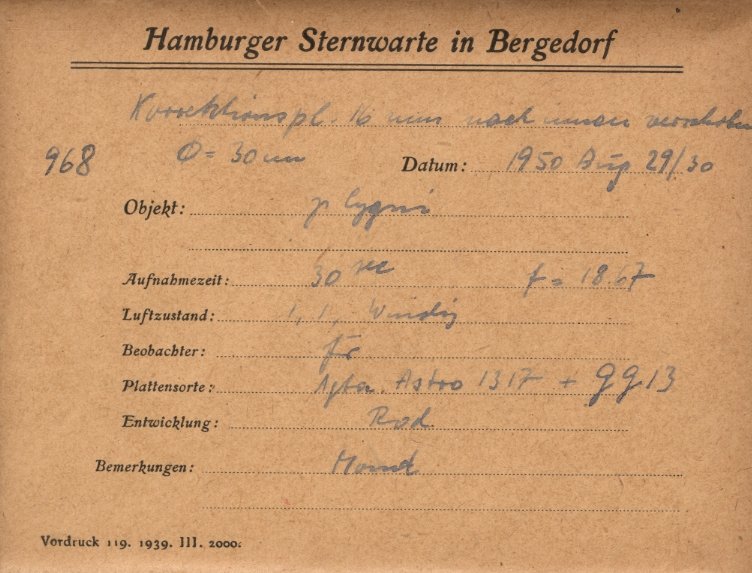 Hamburger Sternwarte in Bergedorf
Korrektionspl. 16 mm nach innen verschoben
968 Φ = 30 cm Datum: 1950 Aug 29/30
Objekt: γ Cygni
Aufnahmezeit: 30 sec f = 18.67
Luftzustand: 1, 1, Windig
Beobachter:
Plattensorte: Agfa. Astro 1317 + gg13
Entwicklung: Rod.
Bemerkungen: Mond
Vordruck 119. 1939. III. 2000.